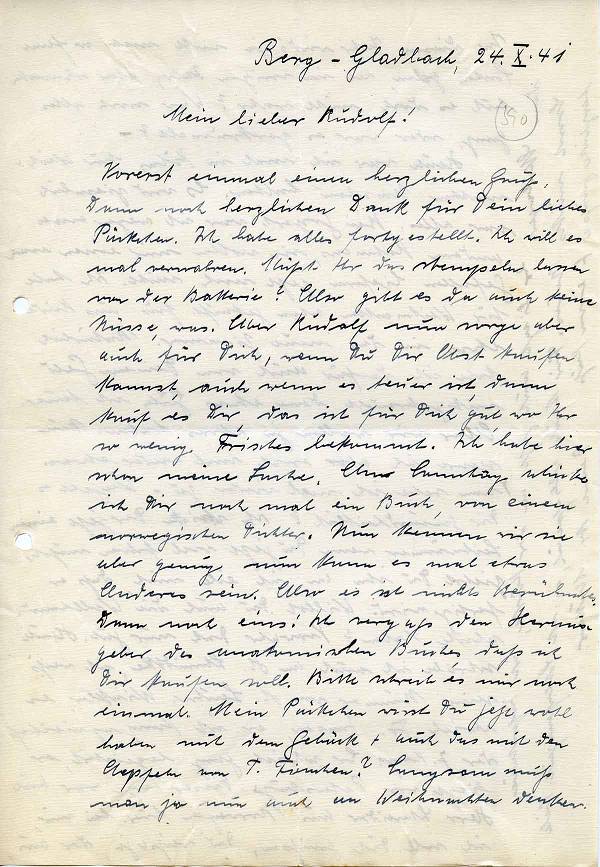 Berg-Gladbach, 24. X. 41
390
Mein lieber Rudolf!
Vorerst einmal einen herzlichen Gruß,
Dann noch herzlichen Dank für Dein liebes
Päckchen. Ich habe alles fortgestellt. Ich will es
mal verwahren. Müßt Ihr das stempeln lassen
von der Batterie? Also gibt es da auch keine
Nüsse, was. Aber Rudolf nun sorge aber
auch für Dich, wenn Du Dir Obst kaufen
kannst, auch wenn es teuer ist, dann
kauf es Dir, das ist für Dich gut, wo Ihr
so wenig Frisches bekommt. Ich habe hier
schon meine Sache. Sonntag schicke
ich Dir noch mal ein Buch, von einem
norwegischen Dichter. Nun kennen wir sie
aber genug, nun kann es mal etwas
Anderes sein. Also es ist nichts Berühmtes.
Dann noch eins! Ich vergaß den Heraus-
geber des anatomischen Buches daß ich
Dir kaufen soll. Bitte schreib es mir noch
einmal. Mein Päckchen wirst Du jetzt wohl
haben mit dem Gebäck + auch das mit den
Aepfeln von T. Finchen? Langsam muß
man ja nun auch an Weihnachten denken.